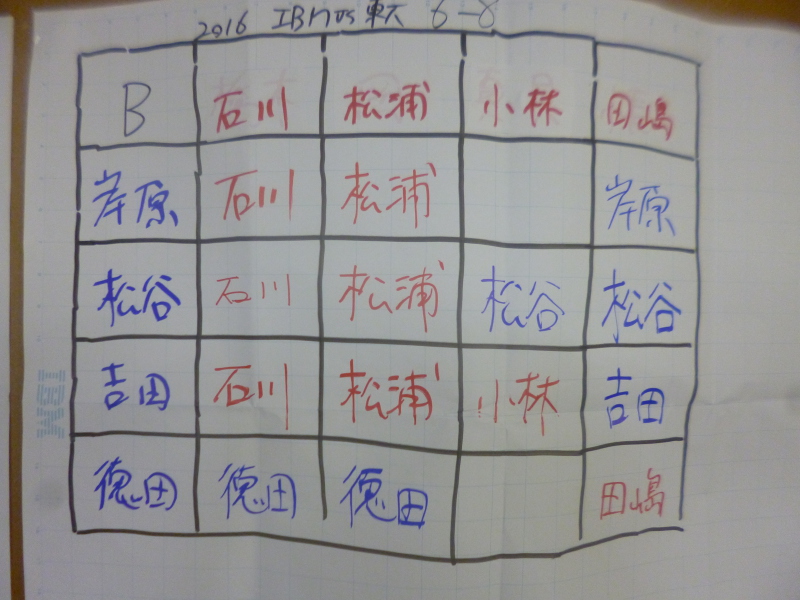 2016 IBM vs 東大 6-8
B 石川 松浦 小林 田嶋
岸原 石川 松浦 岸原
松谷 石川 松浦 松谷 松谷
吉田 石川 松浦 小林 吉田
徳田 徳田 徳田 田嶋
IBM